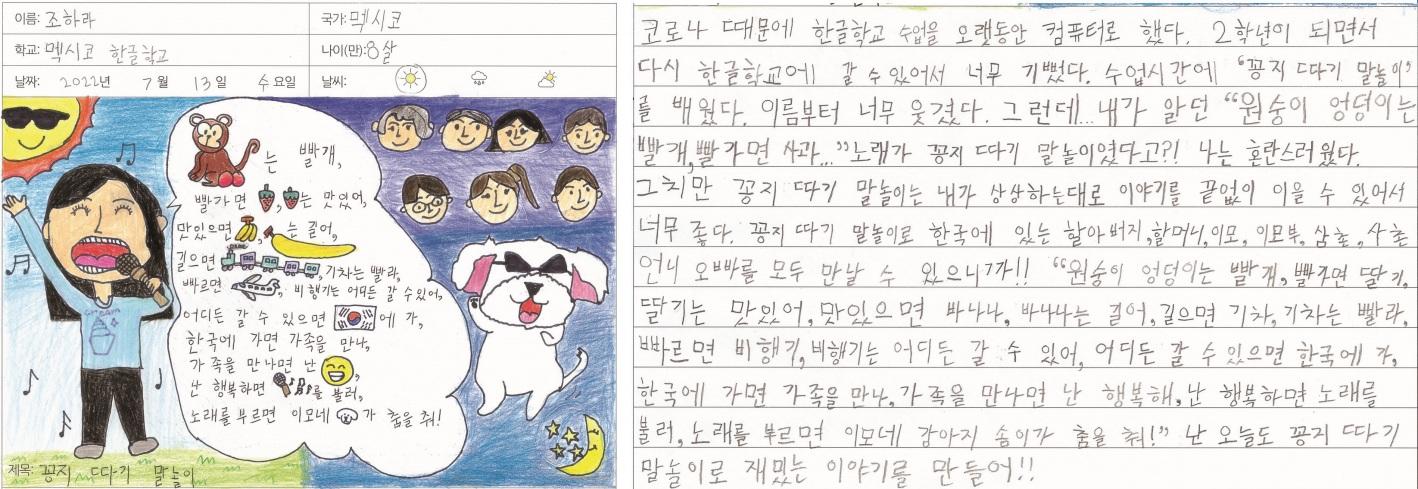 이름: 조하라
국가: 멕시코
학교: 멕시코 한글학교
나이(만): 8살
날짜: 2022년 7월 13일 수요일
날씨:
는 빨개,
빨가면 , 는 맛있어,
맛있으면 , 는 길어,
길으면 , 기차는 빨라,
빠르면 , 비행기는 어디든 갈 수 있어,
어디든 갈 수 있으면 에 가,
한국에 가면 가족을 만나,
가족을 만나면 난 ,
난 행복하면 를 불러,
노래를 부르면 이모네 가 춤을 춰!
제목: 꽁지 따기 말놀이
코로나 때문에 한글학교 수업을 오랫동안 컴퓨터로 했다. 2학년이 되면서
다시 한글학교에 갈 수 있어서 너무 기뻤다. 수업시간에 '꽁지 따기 말놀이'
를 배웠다. 이름부터 너무 웃겼다. 그런데... 내가 알던 "원숭이 엉덩이는
빨개, 빨가면 사과..." 노래가 꽁지 따기 말놀이였다고?! 나는 혼란스러웠다.
그치만 꽁지 따기 말놀이는 내가 상상하는대로 이야기를 끝없이 이을 수 있어서
너무 좋다. 꽁지 따기 말놀이로 한국에 있는 할아버지, 할머니, 이모, 이모부, 삼촌, 사촌
언니 오빠를 모두 만날 수 있으니까!! "원숭이 엉덩이는 빨개, 빨가면 딸기,
딸기는 맛있어, 맛있으면 바나나, 바나나는 길어, 길으면 기차, 기차는 빨라,
빠르면 비행기, 비행기는 어디든 갈 수 있어, 어디든 갈 수 있으면 한국에 가,
한국에 가면 가족을 만나, 가족을 만나면 난 행복해, 난 행복하면 노래를
불러, 노래를 부르면 이모네 강아지 솜이가 춤을 춰!" 난 오늘도 꽁지 따기
말놀이로 재밌는 이야기를 만들어!!